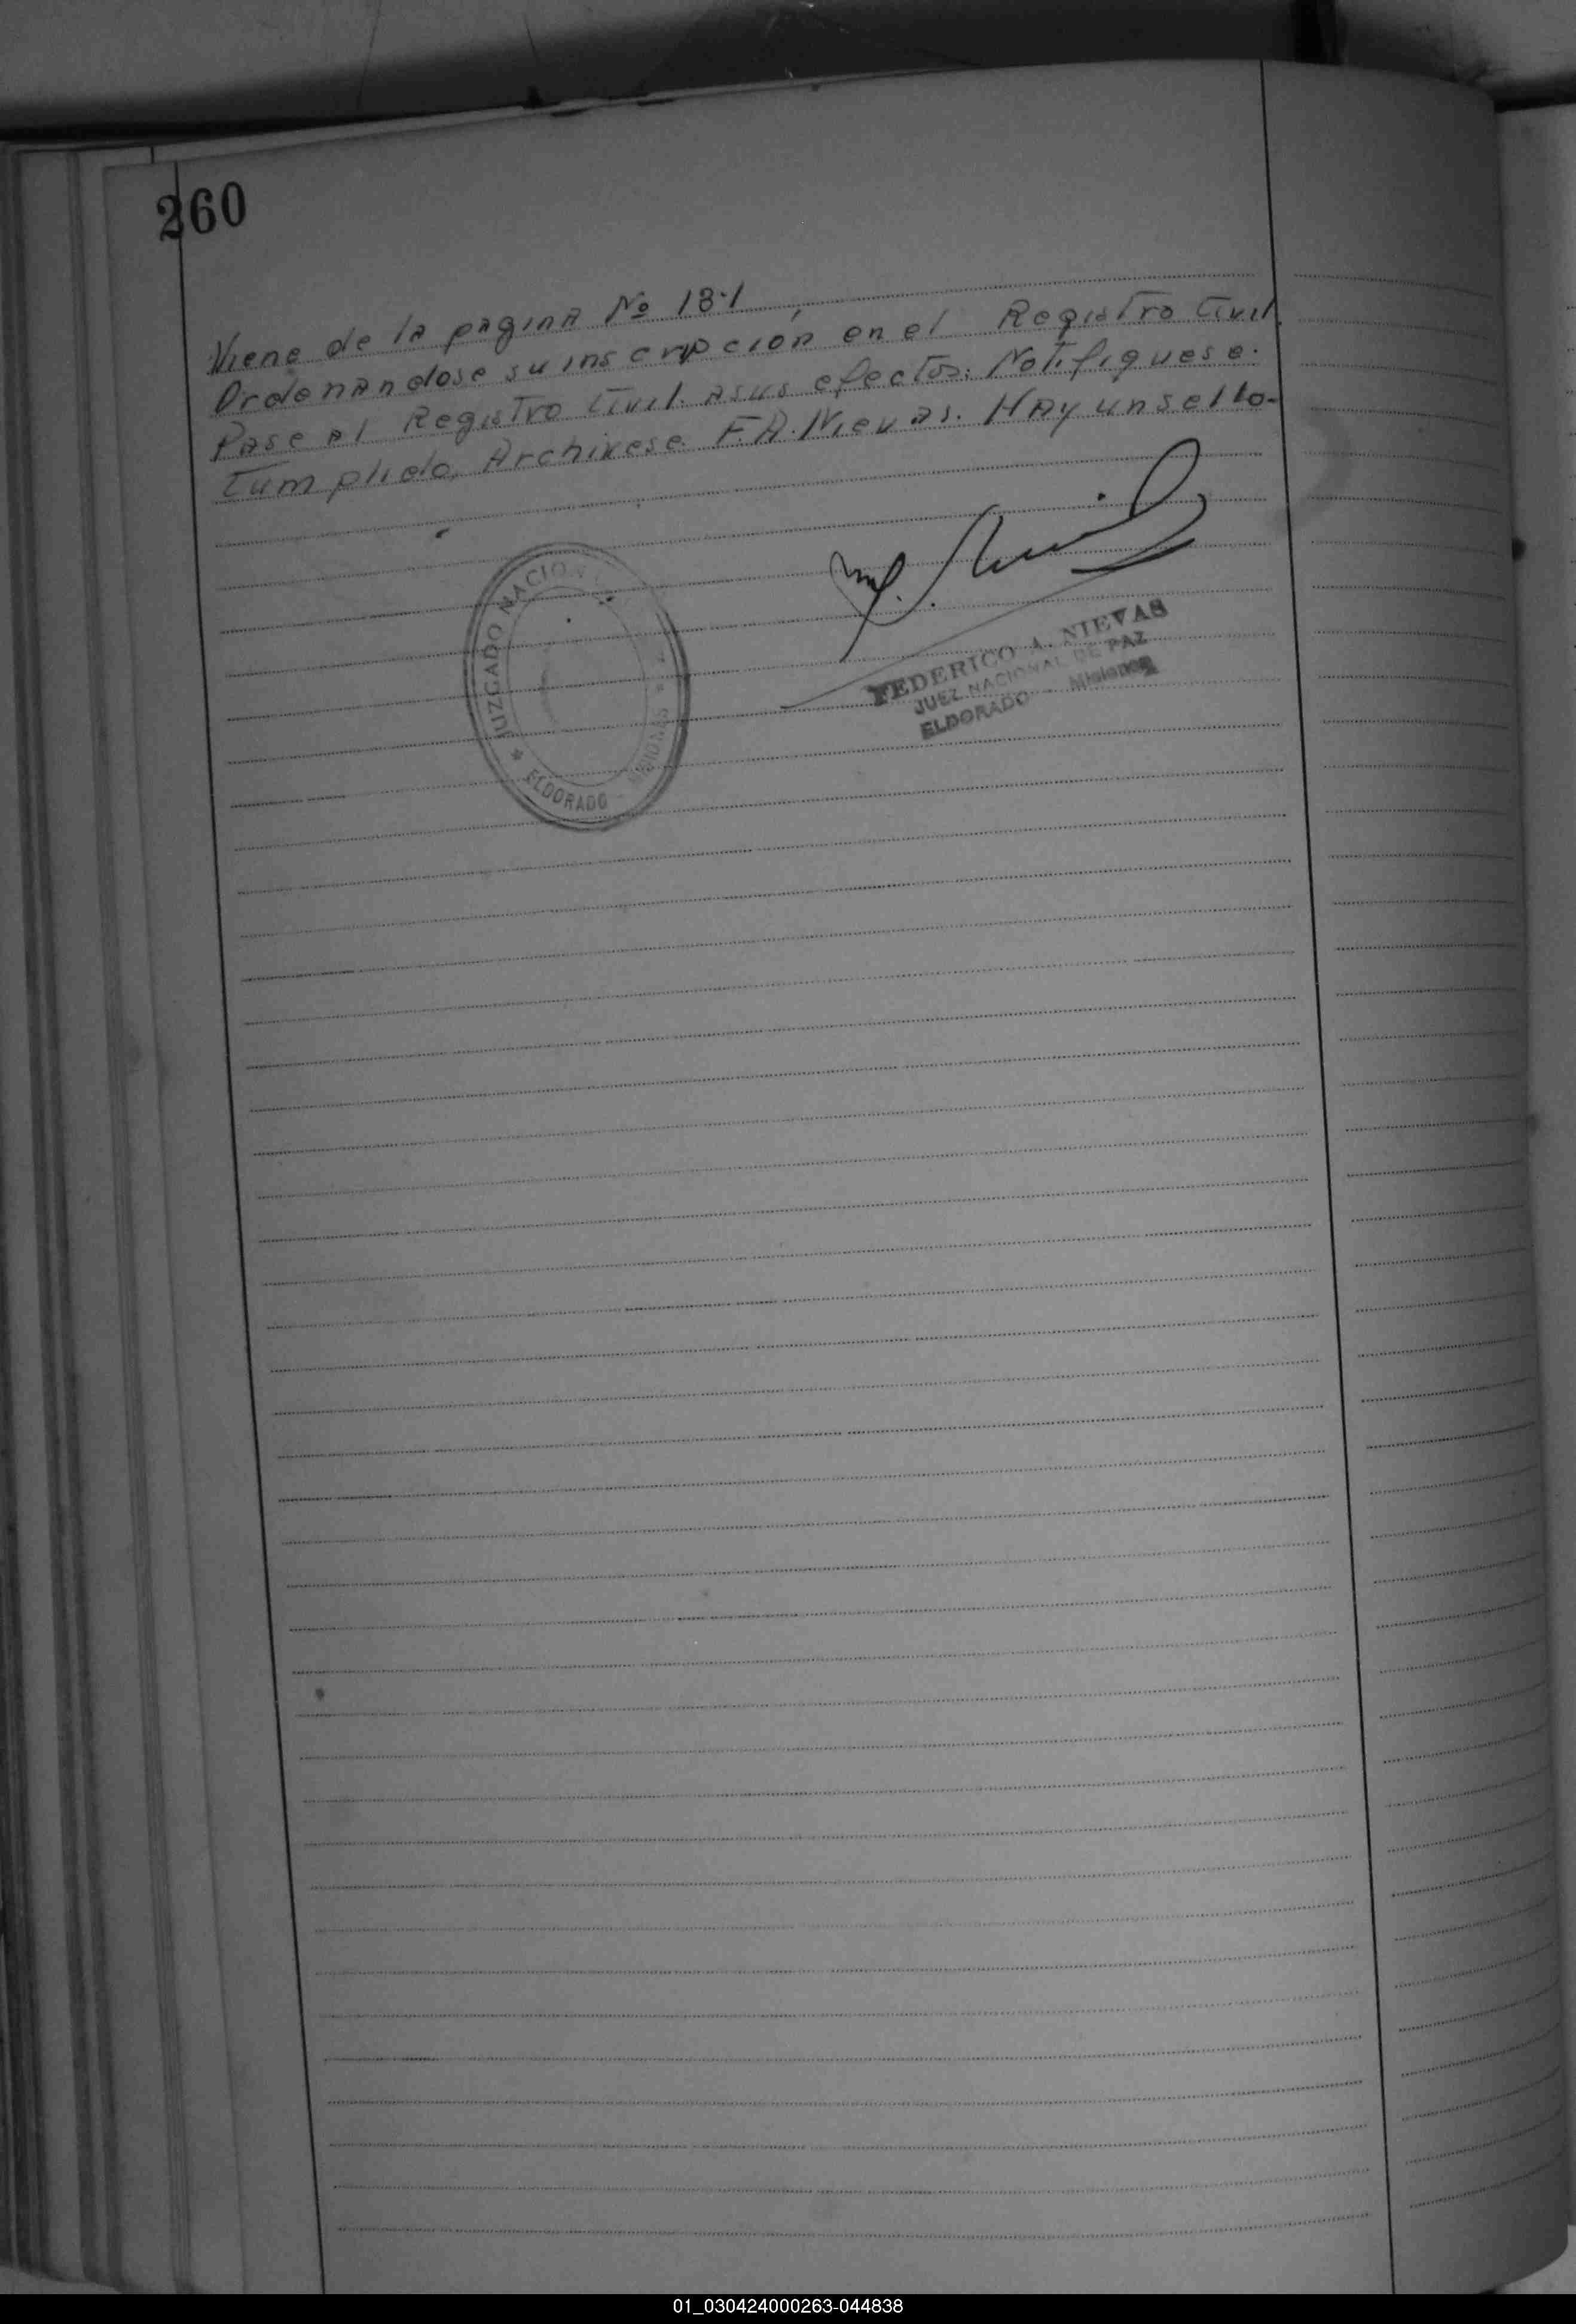 260
Viene de la pagina Nº 181
Ordenandose su inscripción en el Registro Civil.
Pase al Registro Civil a sus efectos. Notifiquese.
Cumplido, Archivese. F.A. Nievas. Hay un sello-
JUZGADO NACIONAL
* ELDORADO - MISIONES
FEDERICO A. NIEVAS
JUEZ NACIONAL DE PAZ
ELDORADO - Misiones
01_030424000263-044838